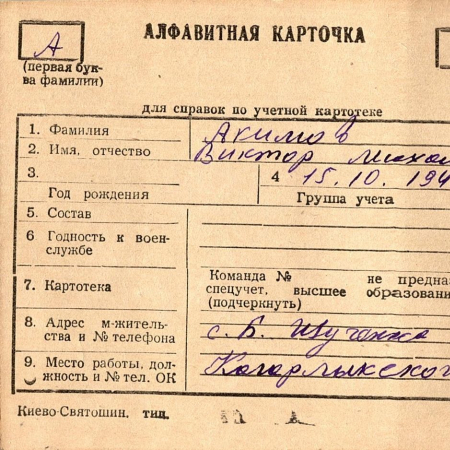 А
АЛФАВИТНАЯ КАРТОЧКА
(первая бук-
ва фамилии)
для справок по учетной картотеке
1. Фамилия Акимов
2. Имя, отчество Виктор Михай
3.
4 15.10.194
Год рождения Группа учета
5. Состав
6 Годность к воен-
службе
Команда № не предна
7. Картотека спецучет, высшее образовани
(подчеркнуть)
8. Адрес м-житель-
ства и № телефона с. Б.
9. Место работы, дол-
жность и № тел. ОК Кагарлыкског
Киево-Святошин. тип.